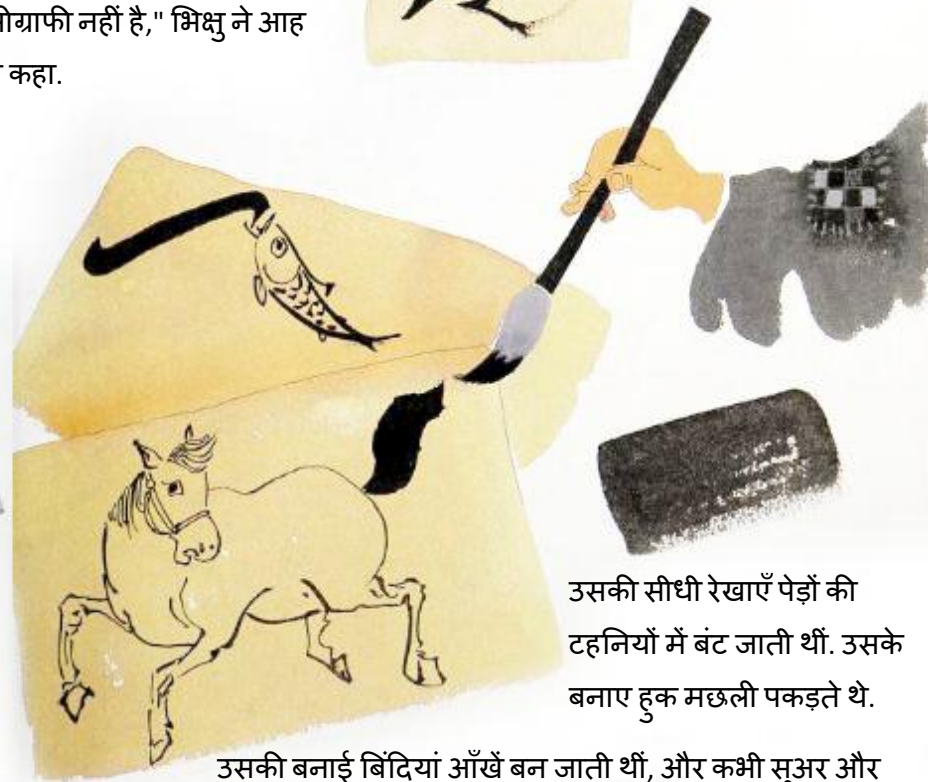 नहीं है," भिक्षु ने आह
कहा.
उसकी सीधी रेखाएँ पेड़ों की
टहनियों में बंट जाती थीं. उसके
बनाए हुक मछली पकड़ते थे.
उसकी बनाई बिंदियां आँखें बन जाती थीं, और कभी सूअर और